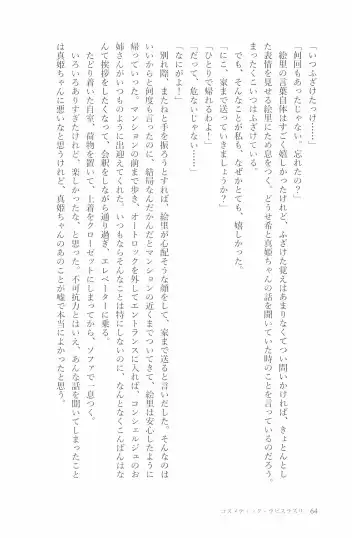 「いつふざけたっけ……」
「何回もあったじゃない。忘れたの？」
　絵里の言葉自体はすごく嬉しかったけれど、ふざけた覚えはあまりなくてつい問いかければ、きょとんとし
た表情を見せる絵里にため息をつく。どうせ希と真姫ちゃんの話を聞いていた時のことを言っているのだろう。
まったくこいつはふざけている。
　でも、そんなことが私も、なぜかとても、嬉しかった。
「にこ、家まで送っていきましょうか？」
「ひとりで帰れるわよ！」
「だって、危ないじゃない……」
「なにがよ！」
　別れ際、またねと手を振ろうとすれば、絵里が心配そうな顔をして、家まで送ると言いだした。そんなのは
いいからと何度も言ったのに、結局なんだかんだとマンションの近くまでついてきて、絵里は安心したように
帰っていった。マンションの前まで歩き、オートロックを外してエントランスに入れば、コンシェルジュのお
姉さんがいつものように出迎えてくれた。いつもならそんなことは特にしないのに、なんとなくこんばんはな
んて挨拶をしたくなって、会釈をしながら通り過ぎ、エレベーターに乗る。
　たどり着いた自室、荷物を置いて、上着をクローゼットにしまってから、ソファで一息つく。
　いろいろありすぎたけれど、楽しかったな、と思った。不可抗力とはいえ、あんな話を聞いてしまったこと
は真姫ちゃんに悪いなと思うけれど、真姫ちゃんのあのことが嘘で本当によかったと思う。
コズメティック・ラピスラズリ　64